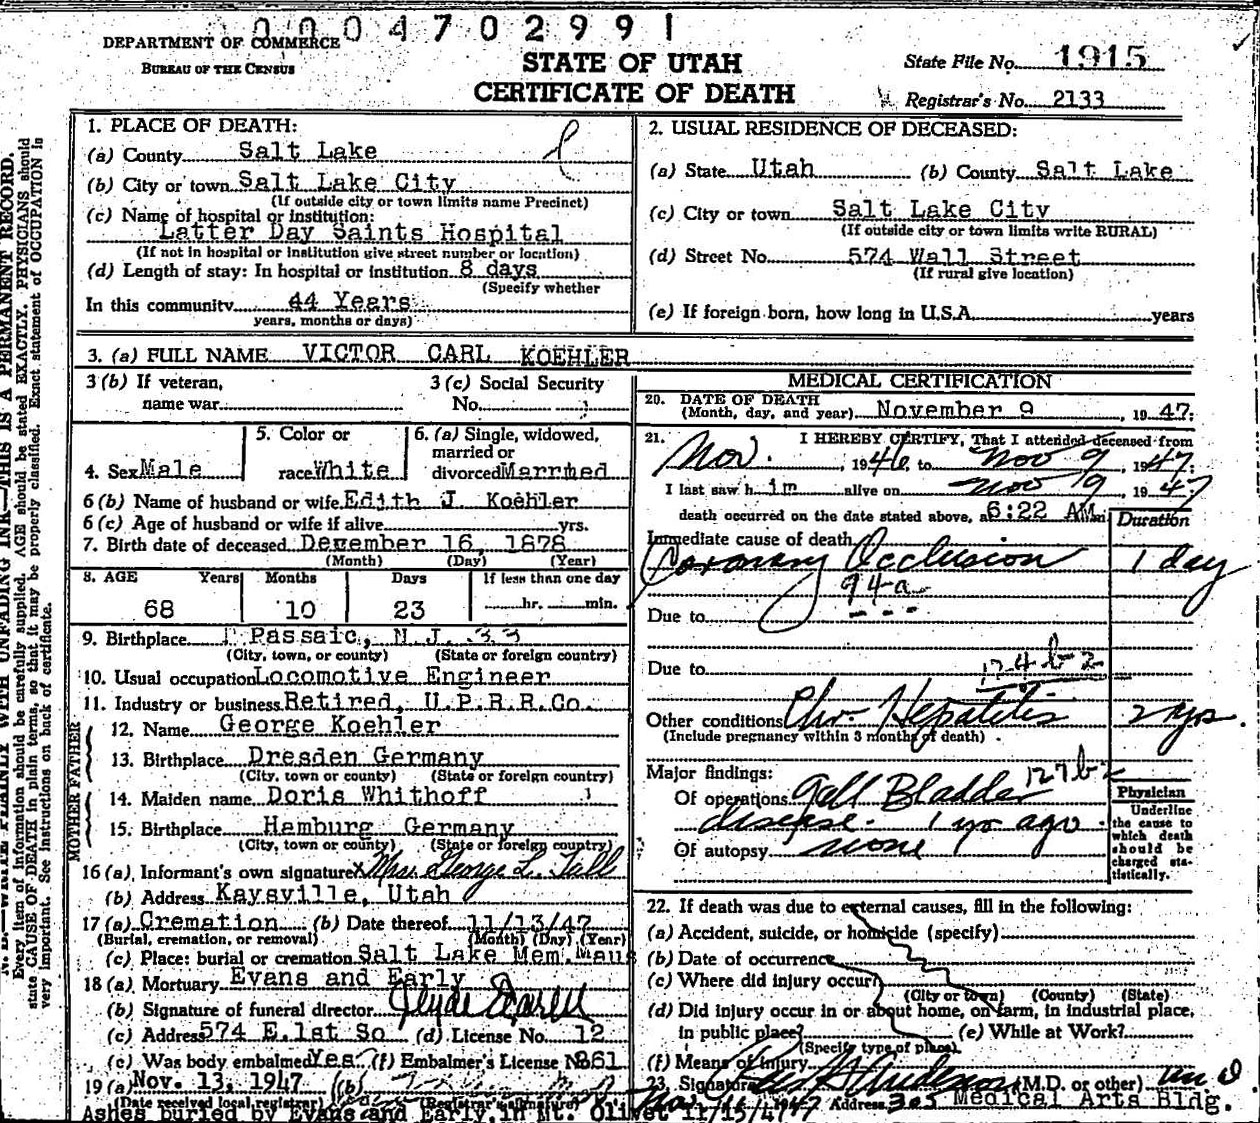 0004702991
DEPARTMENT OF COMMERCE
BUREAU OF THE CENSUS
STATE OF UTAH
CERTIFICATE OF DEATH
State File No. 1915
Registrar's No. 2133
N. B.—WRITE PLAINLY WITH UNFADING INK—THIS IS A PERMANENT RECORD.
Every item of information should be carefully supplied. AGE should be stated EXACTLY. PHYSICIANS should
state CAUSE OF DEATH in plain terms, so that it may be properly classified. Exact statement of OCCUPATION is
very important. See instructions on back of certificate.
1. PLACE OF DEATH:
(a) County Salt Lake
(b) City or town Salt Lake City
(If outside city or town limits name Precinct)
(c) Name of hospital or institution:
Latter Day Saints Hospital
(If not in hospital or institution give street number or location)
(d) Length of stay: In hospital or institution 8 days
(Specify whether
In this community 44 Years
years, months or days)
2. USUAL RESIDENCE OF DECEASED:
(a) State Utah (b) County Salt Lake
(c) City or town Salt Lake City
(If outside city or town limits write RURAL)
(d) Street No. 574 Wall Street
(If rural give location)
(e) If foreign born, how long in U.S.A. years
3. (a) FULL NAME VICTOR CARL KOEHLER
3 (b) If veteran,
name war
3 (c) Social Security
No.
4. Sex Male
5. Color or
race White
6. (a) Single, widowed,
married or
divorced Married
6 (b) Name of husband or wife Edith J. Koehler
6 (c) Age of husband or wife if alive yrs.
7. Birth date of deceased December 16, 1878
(Month) (Day) (Year)
8. AGE Years Months Days If less than one day
68 10 23 hr. min.
9. Birthplace Passaic, N.J. 33
(City, town, or county) (State or foreign country)
10. Usual occupation Locomotive Engineer
11. Industry or business Retired, U.P.R.R.Co.
FATHER
12. Name George Koehler
13. Birthplace Dresden Germany
(City, town or county) (State or foreign country)
MOTHER
14. Maiden name Doris Whithoff
15. Birthplace Hamburg Germany
(City, town or county) (State or foreign country)
16 (a) Informant's own signature x Mrs. George L. Tall
(b) Address Kaysville, Utah
17 (a) Cremation (b) Date thereof 11/13/47
(Burial, cremation, or removal) (Month) (Day) (Year)
(c) Place: burial or cremation Salt Lake Mem. Maus
18 (a) Mortuary Evans and Early
(b) Signature of funeral director
(c) Address 574 E. 1st So (d) License No. 12
(e) Was body embalmed Yes (f) Embalmer's License No 861
19 (a) Nov. 13, 1947 (b)
(Date received local registrar) (Registrar's signature)
Ashes buried by Evans and Early, in Mt. Olivet 11/15/47
MEDICAL CERTIFICATION
20. DATE OF DEATH
(Month, day, and year) November 9, 1947.
21. I HEREBY CERTIFY, That I attended deceased from
Nov. 1946 to Nov 9, 1947.
I last saw him alive on Nov 9 1947
death occurred on the date stated above, at 6:22 AM m
Duration
Immediate cause of death
Coronary Occlusion 1 day
94-a
Due to
Due to
124 b-2
Other conditions Chr. Hepatitis 2 yrs.
(Include pregnancy within 3 months of death)
Major findings: 127 b-2
Of operations Gall Bladder
disease. 1 yr ago.
Of autopsy none
Physician
Underline
the cause to
which death
should be
charged sta-
tistically.
22. If death was due to external causes, fill in the following:
(a) Accident, suicide, or homicide (specify)
(b) Date of occurrence
(c) Where did injury occur?
(City or town) (County) (State)
(d) Did injury occur in or about home, on farm, in industrial place,
in public place? (e) While at Work?
(Specify type of place)
(f) Means of injury
23. Signature (M.D. or other) M D
Address 305 Medical Arts Bldg.